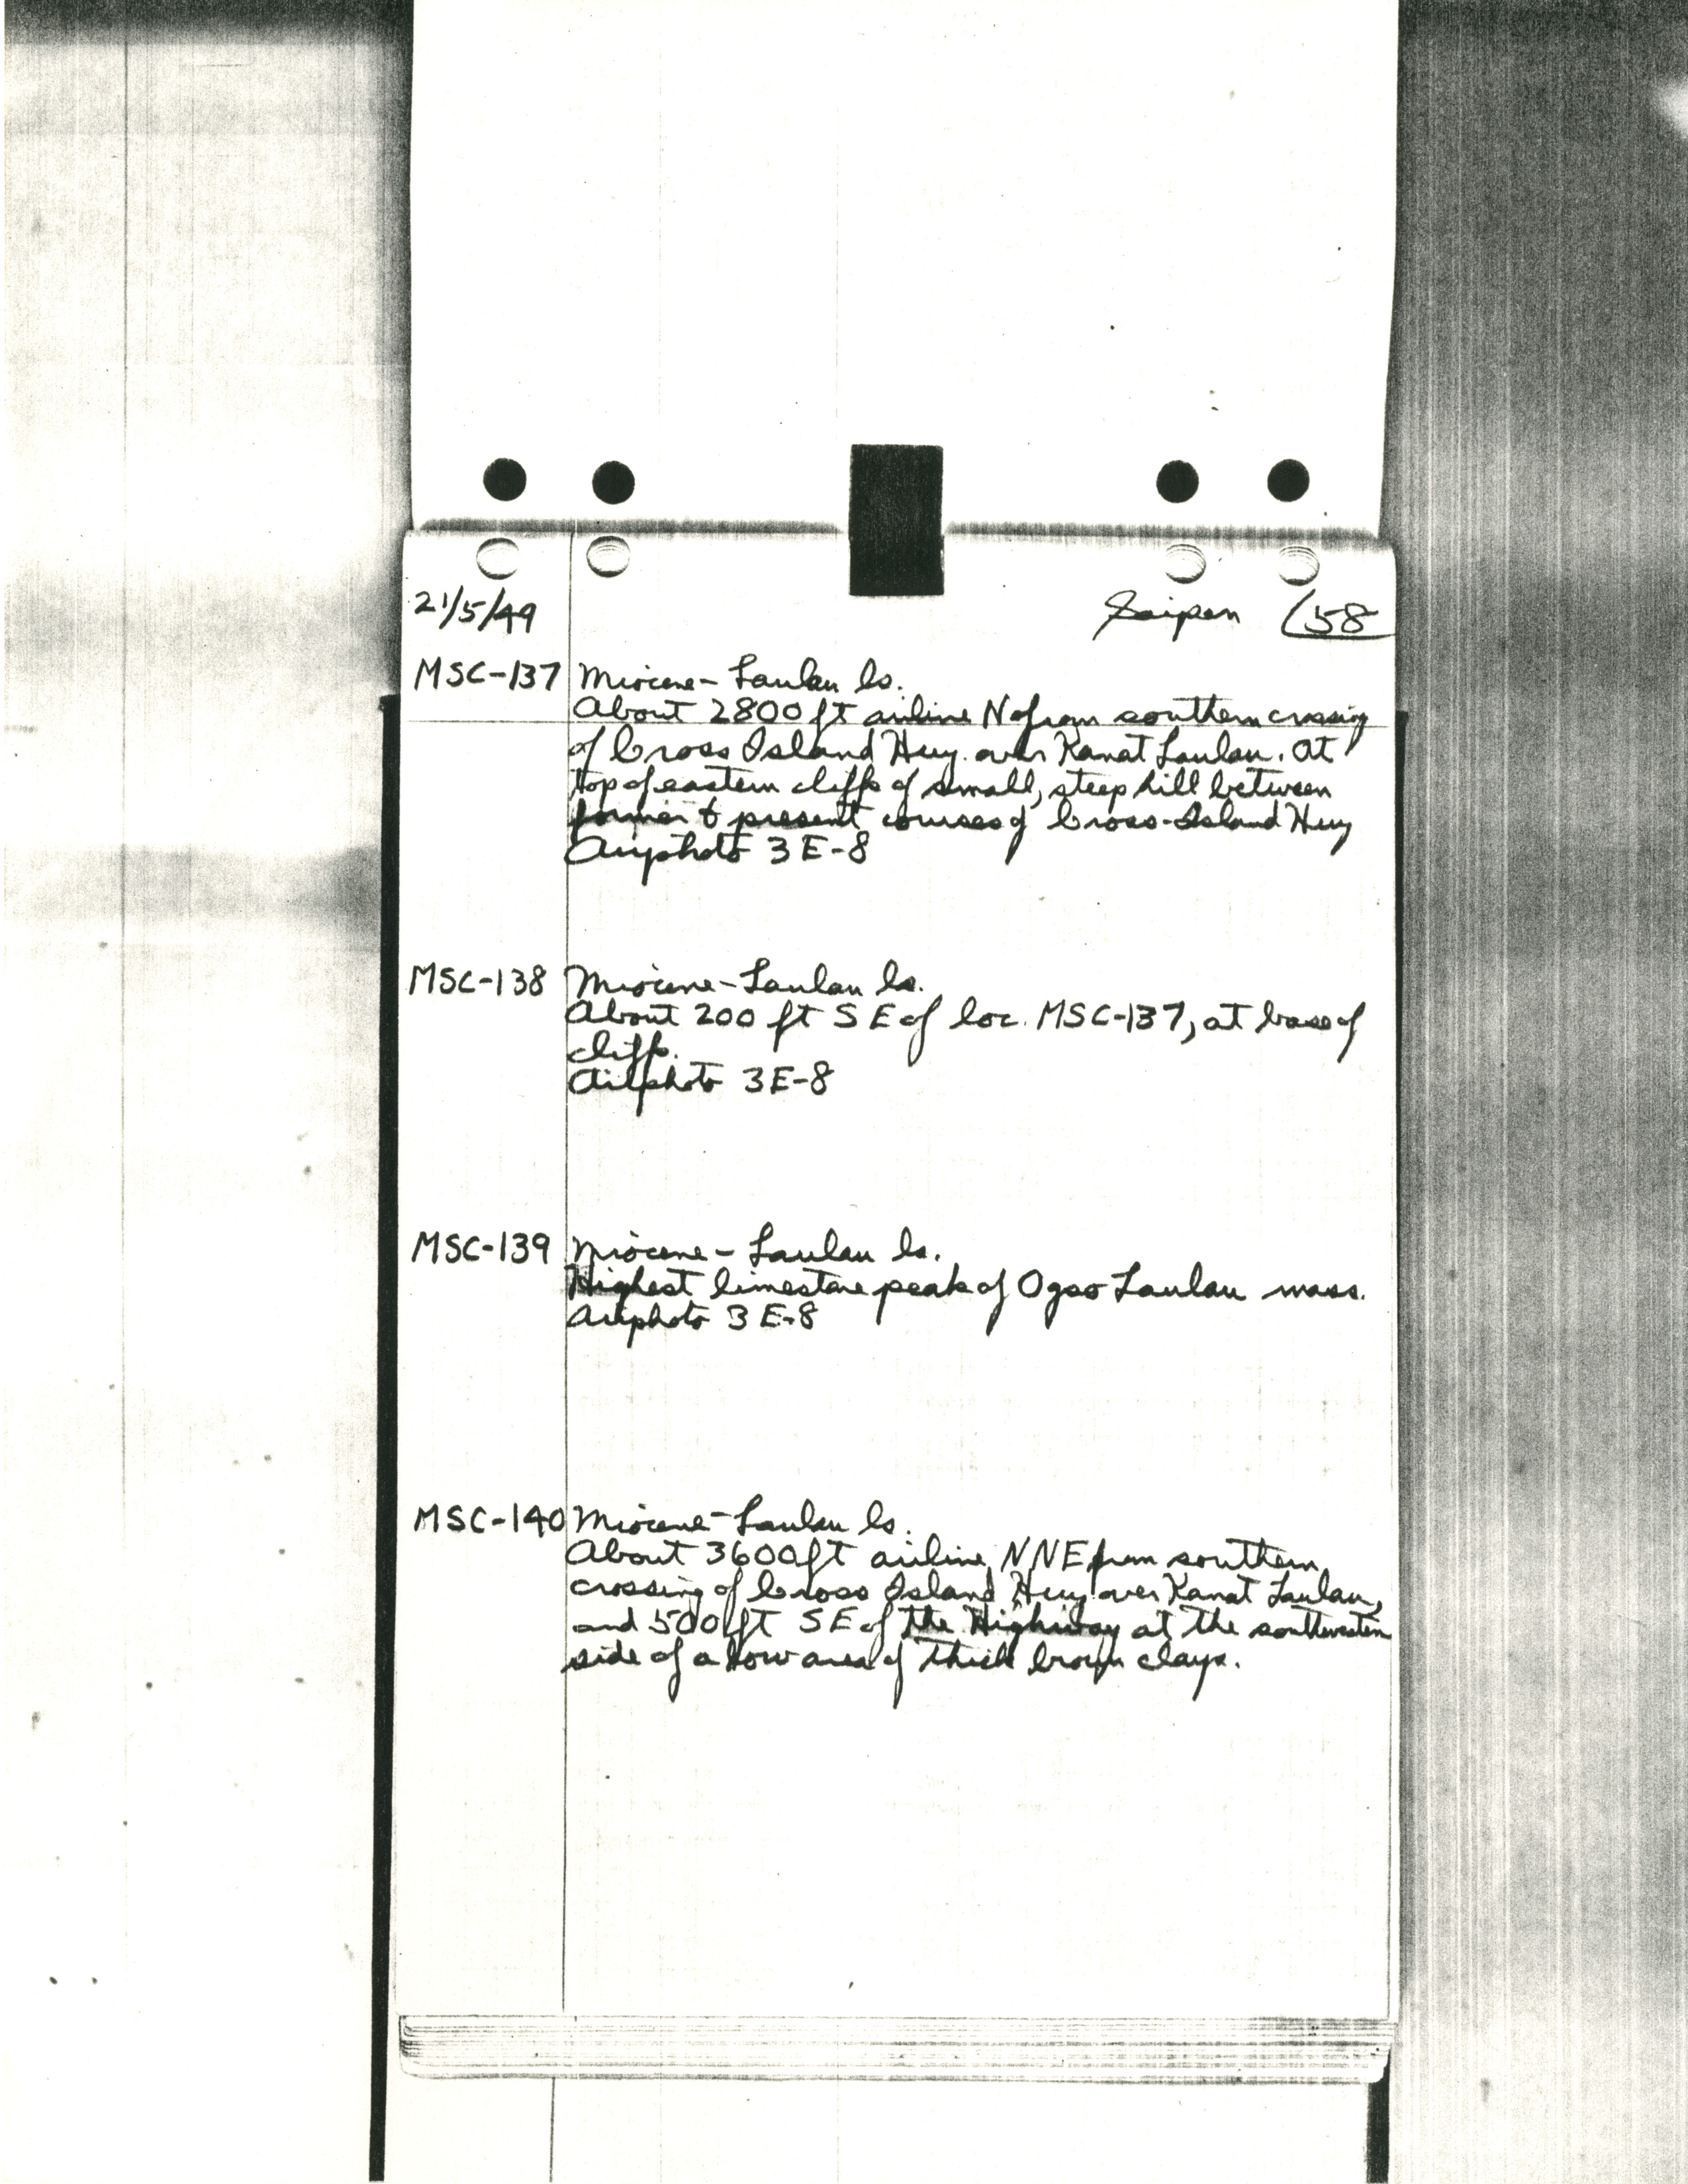 21/5/49
Saipan 58
MSC-137 Miocene-Laulau ls.
About 2800 ft airline N of from southern crossing
of Cross Island Hwy. over Kanat Laulau. At
top of eastern cliffs of small, steep hill between
former & present courses of Cross-Island Hwy
Airphoto 3E-8
MSC-138 Miocene-Laulau ls.
About 200 ft SE of loc. MSC-137, at base of
cliffs.
Airphoto 3E-8
MSC-139 Miocene-Laulau ls.
Highest limestone peak of Ogso Laulau mass.
Airphoto 3E-8
MSC-140 Miocene-Laulau ls.
About 3600 ft airline NNE from southern
crossing of Cross Island Hwy over Kanat Laulau,
and 500 ft SE of the Highway at the southwestern
side of a low area of thick brown clays.